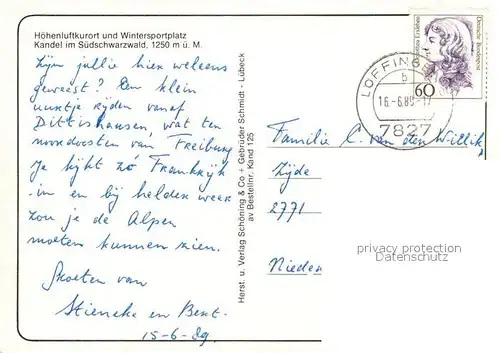 Höhenluftkurort und Wintersportplatz
Kandel im Südschwarzwald, 1250 m ü. M.
Zijn jullie hier weleens
geweest? Een klein
uurtje rijden vanaf
Dittishausen, wat ten
noordwesten van Freiburg
Je kijkt zó Frankrijk
in en bij helder weer
zou je de Alpen
moeten kunnen zien.
Groeten van
Stieneke en Bert.
15-6-89.
Herst. u. Verlag Schöning & Co + Gebrüder Schmidt - Lübeck
av Bestellnr. Kand 125
Deutsche Bundespost
60
LÖFFING
b
16.-6.89-17
7827
Familie C. van den Willik
Zijde
2771
Nieder
privacy protection
Datenschutz